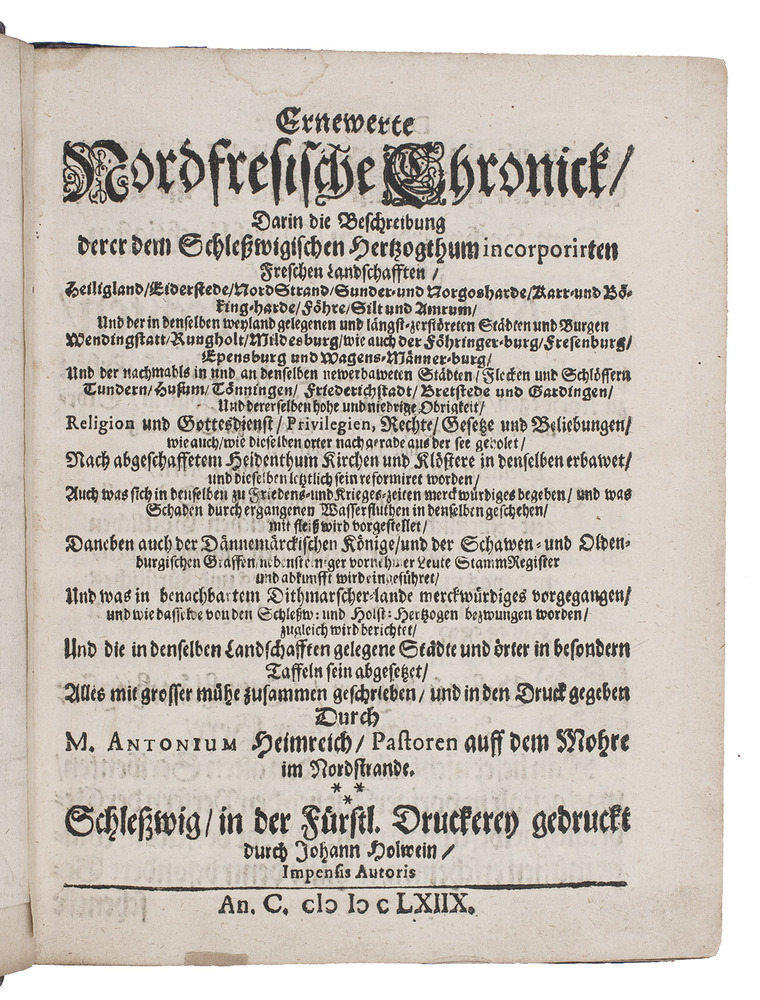 Ernewerte
Nordfresische Chronick/
Darin die Beschreibung
derer dem Schleßwigischen Hertzogthum incorporirten
Freschen Landschafften /
Heiligland/Eiderstede/NordStrand/Sunder-und Norgosharde/Karr-und Bö-
king-harde/Föhre/Silt und Amrum/
Und der in denselben weyland gelegenen und längst-zerstöreten Städten und Burgen
Wendingstatt/Rungholt/Mildesburg/wie auch der Föhringer-burg/Fresenburg/
Epensburg und Wagens-Männer-burg/
Und der nachmahls in und an denselben newerbaweten Städten/Flecken und Schlössern
Tundern/Husum/Tönningen/ Friederichstadt/Bretstede und Gardingen/
Und dererselben hohe und niedrige Obrigkeit/
Religion und Gottesdienst/Privilegien, Rechte/Gesetze und Beliebungen/
wie auch/wie dieselben örter nachgerade aus der see geholet/
Nach abgeschaffetem Heidenthum Kirchen und Klöstere in denselben erbawet/
und dieselben letztlich sein reformiret worden/
Auch was sich in denselben zu Friedens-und Krieges-zeiten merckwürdiges begeben/ und was
Schaden durch ergangenen Wasserfluthen in denselben geschehen/
mit fleiß wird vorgestellet/
Daneben auch der Dännemärckischen Könige/und der Schawen- und Olden-
burgischen Graffen nebenst einiger vornehmer Leute StammRegister
und abkunfft wird eingeführet/
Und was in benachbartem Dithmarscher-lande merckwürdiges vorgegangen/
und wie dasselbe von den Schleßw: und Holst: Hertzogen bezwungen worden/
zugleich wird berichtet/
Und die in denselben Landschafften gelegene Städte und örter in besondern
Taffeln sein abgesetzet/
Alles mit grosser mühe zusammen geschrieben/ und in den Druck gegeben
Durch
M. ANTONIUM Heimreich/ Pastoren auff dem Mohre
im Nordstrande.
* *
*
Schleßwig/ in der Fürstl. Druckerey gedruckt
durch Johann Holwein/
Impensis Autoris
An. C. cIɔ Iɔ c LXIIX.